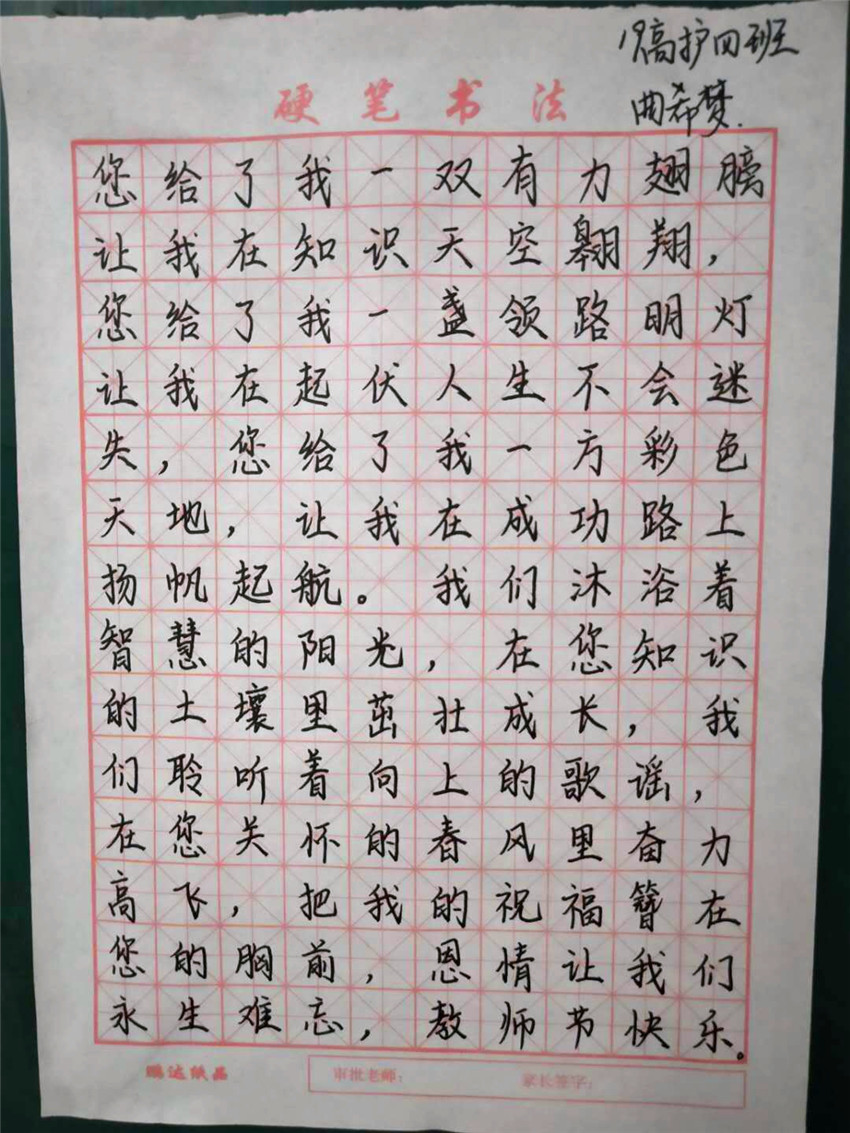 19高护四班
曲希梦.
硬笔书法
您给了我一双有力翅膀
让我在知识天空翱翔，
您给了我一盏领路明灯
让我在起伏人生不会迷
失，您给了我一方彩色
天地，让我在成功路上
扬帆起航。我们沐浴着
智慧的阳光，在您知识
的土壤里茁壮成长，我
们聆听着向上的歌谣，
在您关怀的春风里奋力
高飞，把我的祝福簪在
您的胸前，恩情让我们
永生难忘，教师节快乐。
鹏达纸品
审批老师： 家长签字：